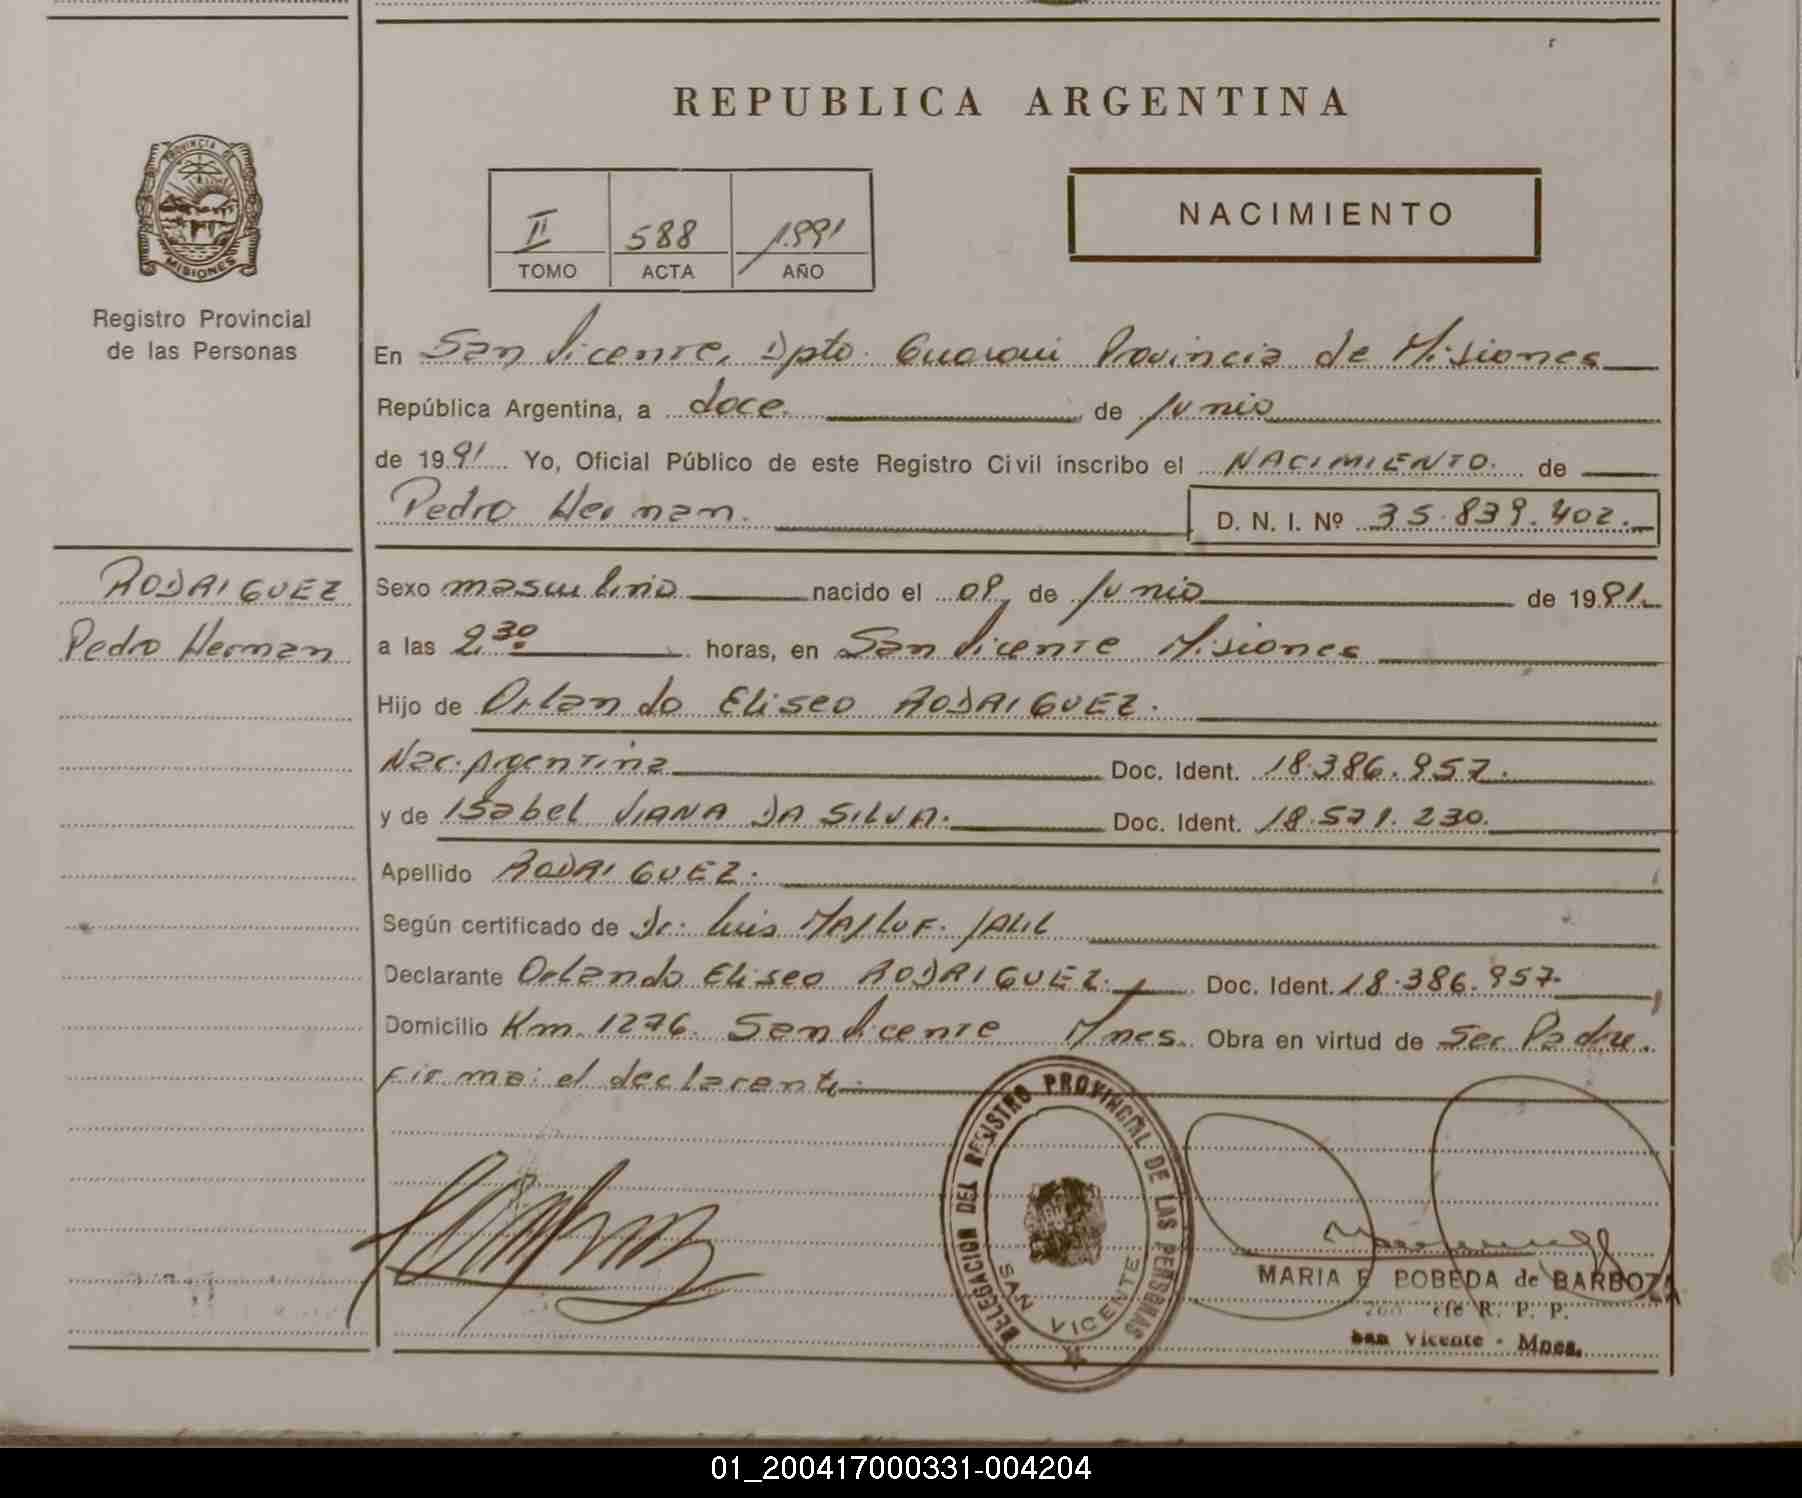 REPUBLICA ARGENTINA
PROVINCIA DE
MISIONES
Registro Provincial
de las Personas
II 588 1991
TOMO ACTA AÑO
NACIMIENTO
En San Vicente, Dpto. Guarani Provincia de Misiones
República Argentina, a doce de junio
de 1991 Yo, Oficial Público de este Registro Civil inscribo el NACIMIENTO. de
Pedro Hernan. D. N. I. Nº 35.839.402.
RODRIGUEZ
Pedro Hernan
Sexo masculino nacido el 09 de junio de 1991.
a las 2,30 horas, en San Vicente Misiones
Hijo de Orlando Eliseo RODRIGUEZ.
Nac. Argentina Doc. Ident. 18.386.957.
y de Isabel VIANA DA SILVA. Doc. Ident. 18.571.230.
Apellido RODRIGUEZ.
Según certificado de Dr. Luis
Declarante Orlando Eliseo RODRIGUEZ. Doc. Ident. 18.386.957.
Domicilio Km. 1276. San Vicente Mnes. Obra en virtud de Ser Padre.
Firma: el declarante.
DELEGACION DEL REGISTRO PROVINCIAL DE LAS PERSONAS
SAN VICENTE
MARIA E POBEDA de BARBOZA
R. P. P.
San Vicente - Mnes.
01_200417000331-004204